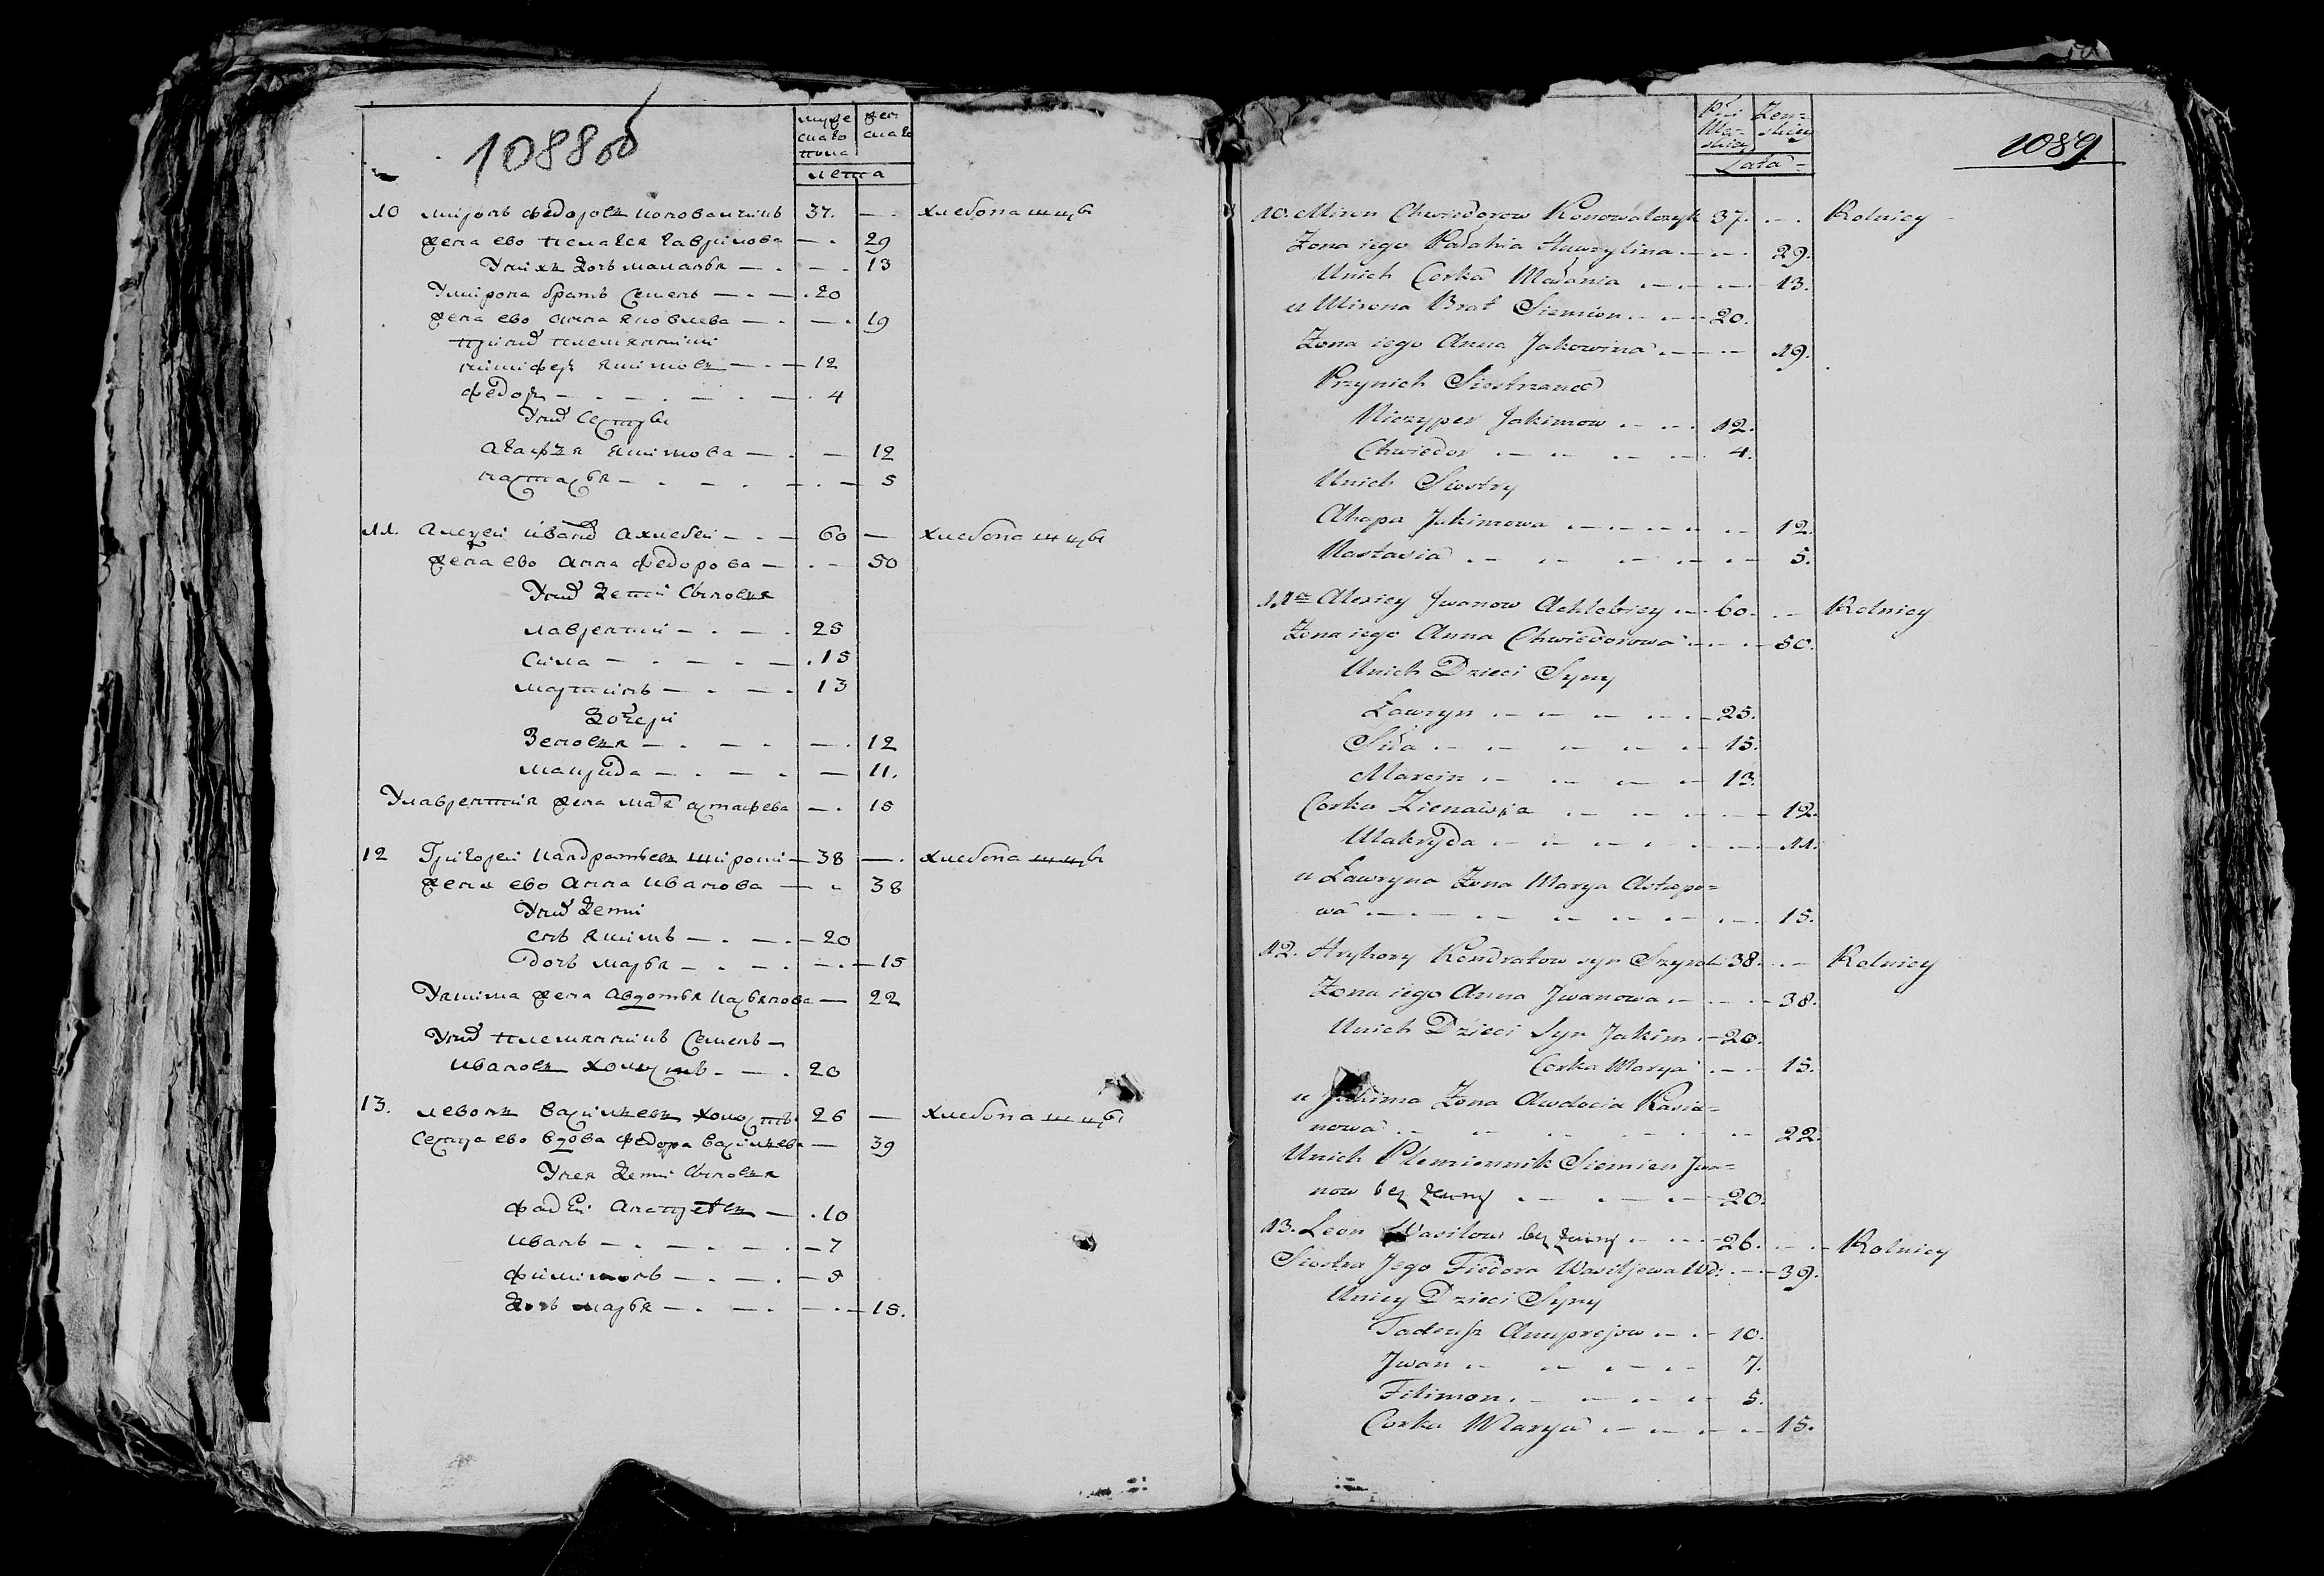 1088об
муже
скаго
пола
жен
скаго
лета
10 миронъ федоровъ коновалчикъ 37. — . хлебопашцы
жена ево пелагея гаврилова — . 29
Униχъ дочь маланья — . — . 13
Умирона братъ семенъ — . — . 20
жена ево анна яковлева — . — . 19
приних племянники
никифоръ якимовъ — . — 12
федоръ — . — . — . — . 4
Уних сестры
агафия якимова — . — 12
настасья — . — . — . — 5
11. алексей иванов ахлебеи — . — 60 — хлебопашцы
жена ево анна федорова — . — 50
Уних дети сыновья
лаврентий — . — . 25
сила — . — . — . 15
мартинъ — . — . 13
дочери
зеновия — . — . — . 12
макрида — . — . — 11.
Улаврентия жена маря астафева — . 15
12 Григорей кандратьевъ широки — 38 — . хлебопашцы
жена ево анна иванова — . 38
Уних дети
сынъ якимъ — . — . — 20
дочь марья — . — . — . — 15
Уякима жена авдотья касьянова — 22
Уних племянникъ семенъ —
ивановъ холостъ . — . 20
13. левонъ васильевъ холостъ. 26 — хлебопашцы
сестра ево вдова федора васильева — 39
Унея дети сыновья
фадеи анопреевъ — . 10
иванъ — . — . — . — 7
филимонъ — . — . — 5
дочь марья — . — . — . — 15.
Płci
Męz-
skiey
Zen-
skiey
Lata
1089
10. Miron Chwiedorow Konowalczyk 37. — . Rolnicy
Zona iego Pałahia Hawryłina . — — . 29.
Unich Corka Małania . — — — 13.
u Mirona Brat Siemion . — . — 20.
Zona iego Anna Jakowina . — — 19.
Przynich Siestrzancʼ
Niczyper Jakimow . — . — 12.
Chwiedor . — — — . 4.
Unich Siostry
Ahapa Jakimowa . — — — — 12.
Nastasia . — — — — 5.
11. Alexiey Jwanow Achlebiey . — . 60. — Rolnicy
Zona iego Anna Chwiedorowa . — — 50.
Unich Dzieci Syny
Ławryn . — — — . — 25.
Siła . — — — — 15.
Marcin . — — — 13.
Corka Zienawia . — — — 12.
Makryda . — — — — 11.
u Ławryna Zona Marya Astapo-
wa . — — — — 15.
12. Hryhory Kondratow syn Szyroki 38. . — Rolnicy
Zona iego Anna Jwanowa . — — . — 38.
Unich Dzieci Syn Jakim . — 20.
Corka Marya . — — 15.
u Jakima Zona Awdocia Kasia-
nowa . — — — — 22.
Unich Plemiennik Siemien Jwa-
now bez zenny . — . — . — 20.
13. Leon Wasilow bez zenny . — . — 26. . — . — Rolnicy
Siostra Jego Fiedora Wasiljewa Wd: . — — 39.
Uniey Dzieci Syny
Tadeusz Anuprejow . — . — 10.
Jwan . — — — — 7.
Filimon . — — — — 5.
Corka Marya . — — — — 15.